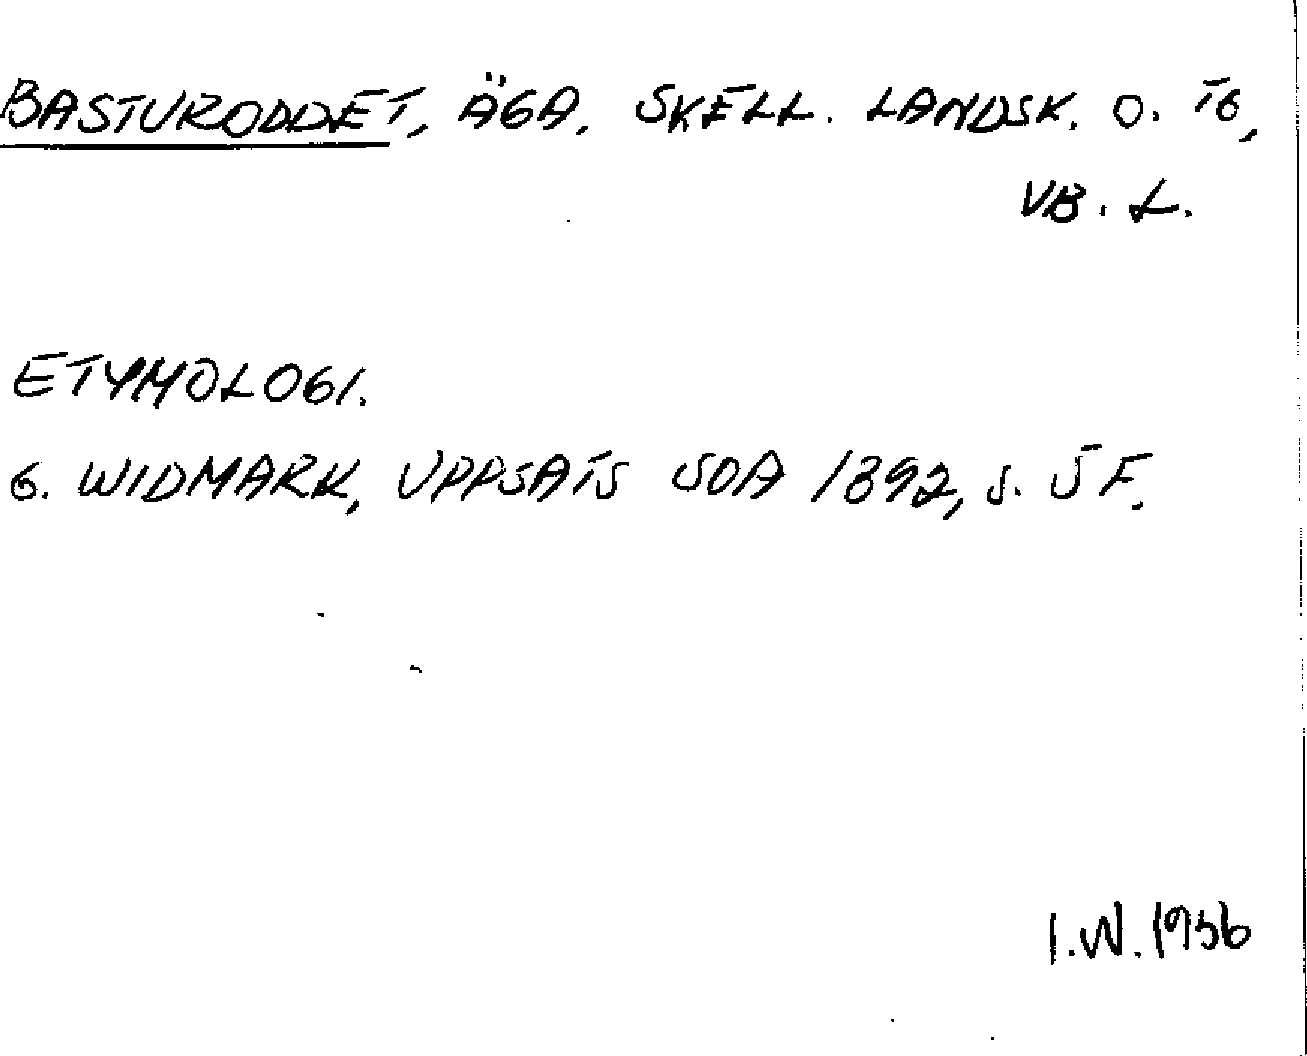 BASTURODDET, ÄGA. SKELL. LANDSK. O. TG,
VB. L.
ETYMOLOGI.
G. WIDMARK, UPPSATS SOA 1892, S. 5 F.
I.W. 1956